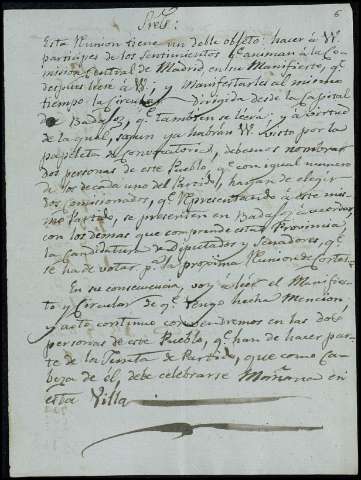 6
Sres:
Esta Reunion tiene un doble objeto: hacer á VV.
participes de los sentimientos q.e animan à la Co-
mision Central de Madrid, en su Manifiesto, q.e
despues leeré à VV; y Manifestarles al mismo
tiempo la Circular dirigida desde la Capital
de Badajoz, q.e tambien se leerá; y à virtud
de la qual, segun ya habrán VV. visto por la
papeleta de Convocatoria, debemos nombrar
dos personas de este Pueblo, q.e con igual numero
de los de cada uno del Partido, hayan de elegir
dos Comisionados, q.e Representando à este mis-
mo Partido, se presenten en Badajoz à acordar
con los demas que comprende esta Provincia,
la Candidatura de Diputados y Senadores, q.e
se ha de votar p.a la proxima Reunion de Cortes.
En su consecuencia, voy à leer el Manifies-
to y Circular de q.e tengo hecha Mencion,
y acto continuo convendremos en las dos
personas de este Pueblo, q.e han de hacer par-
te de la Junta de Partido, que como Ca-
beza de él, debe celebrarse Mañana en
esta Villa